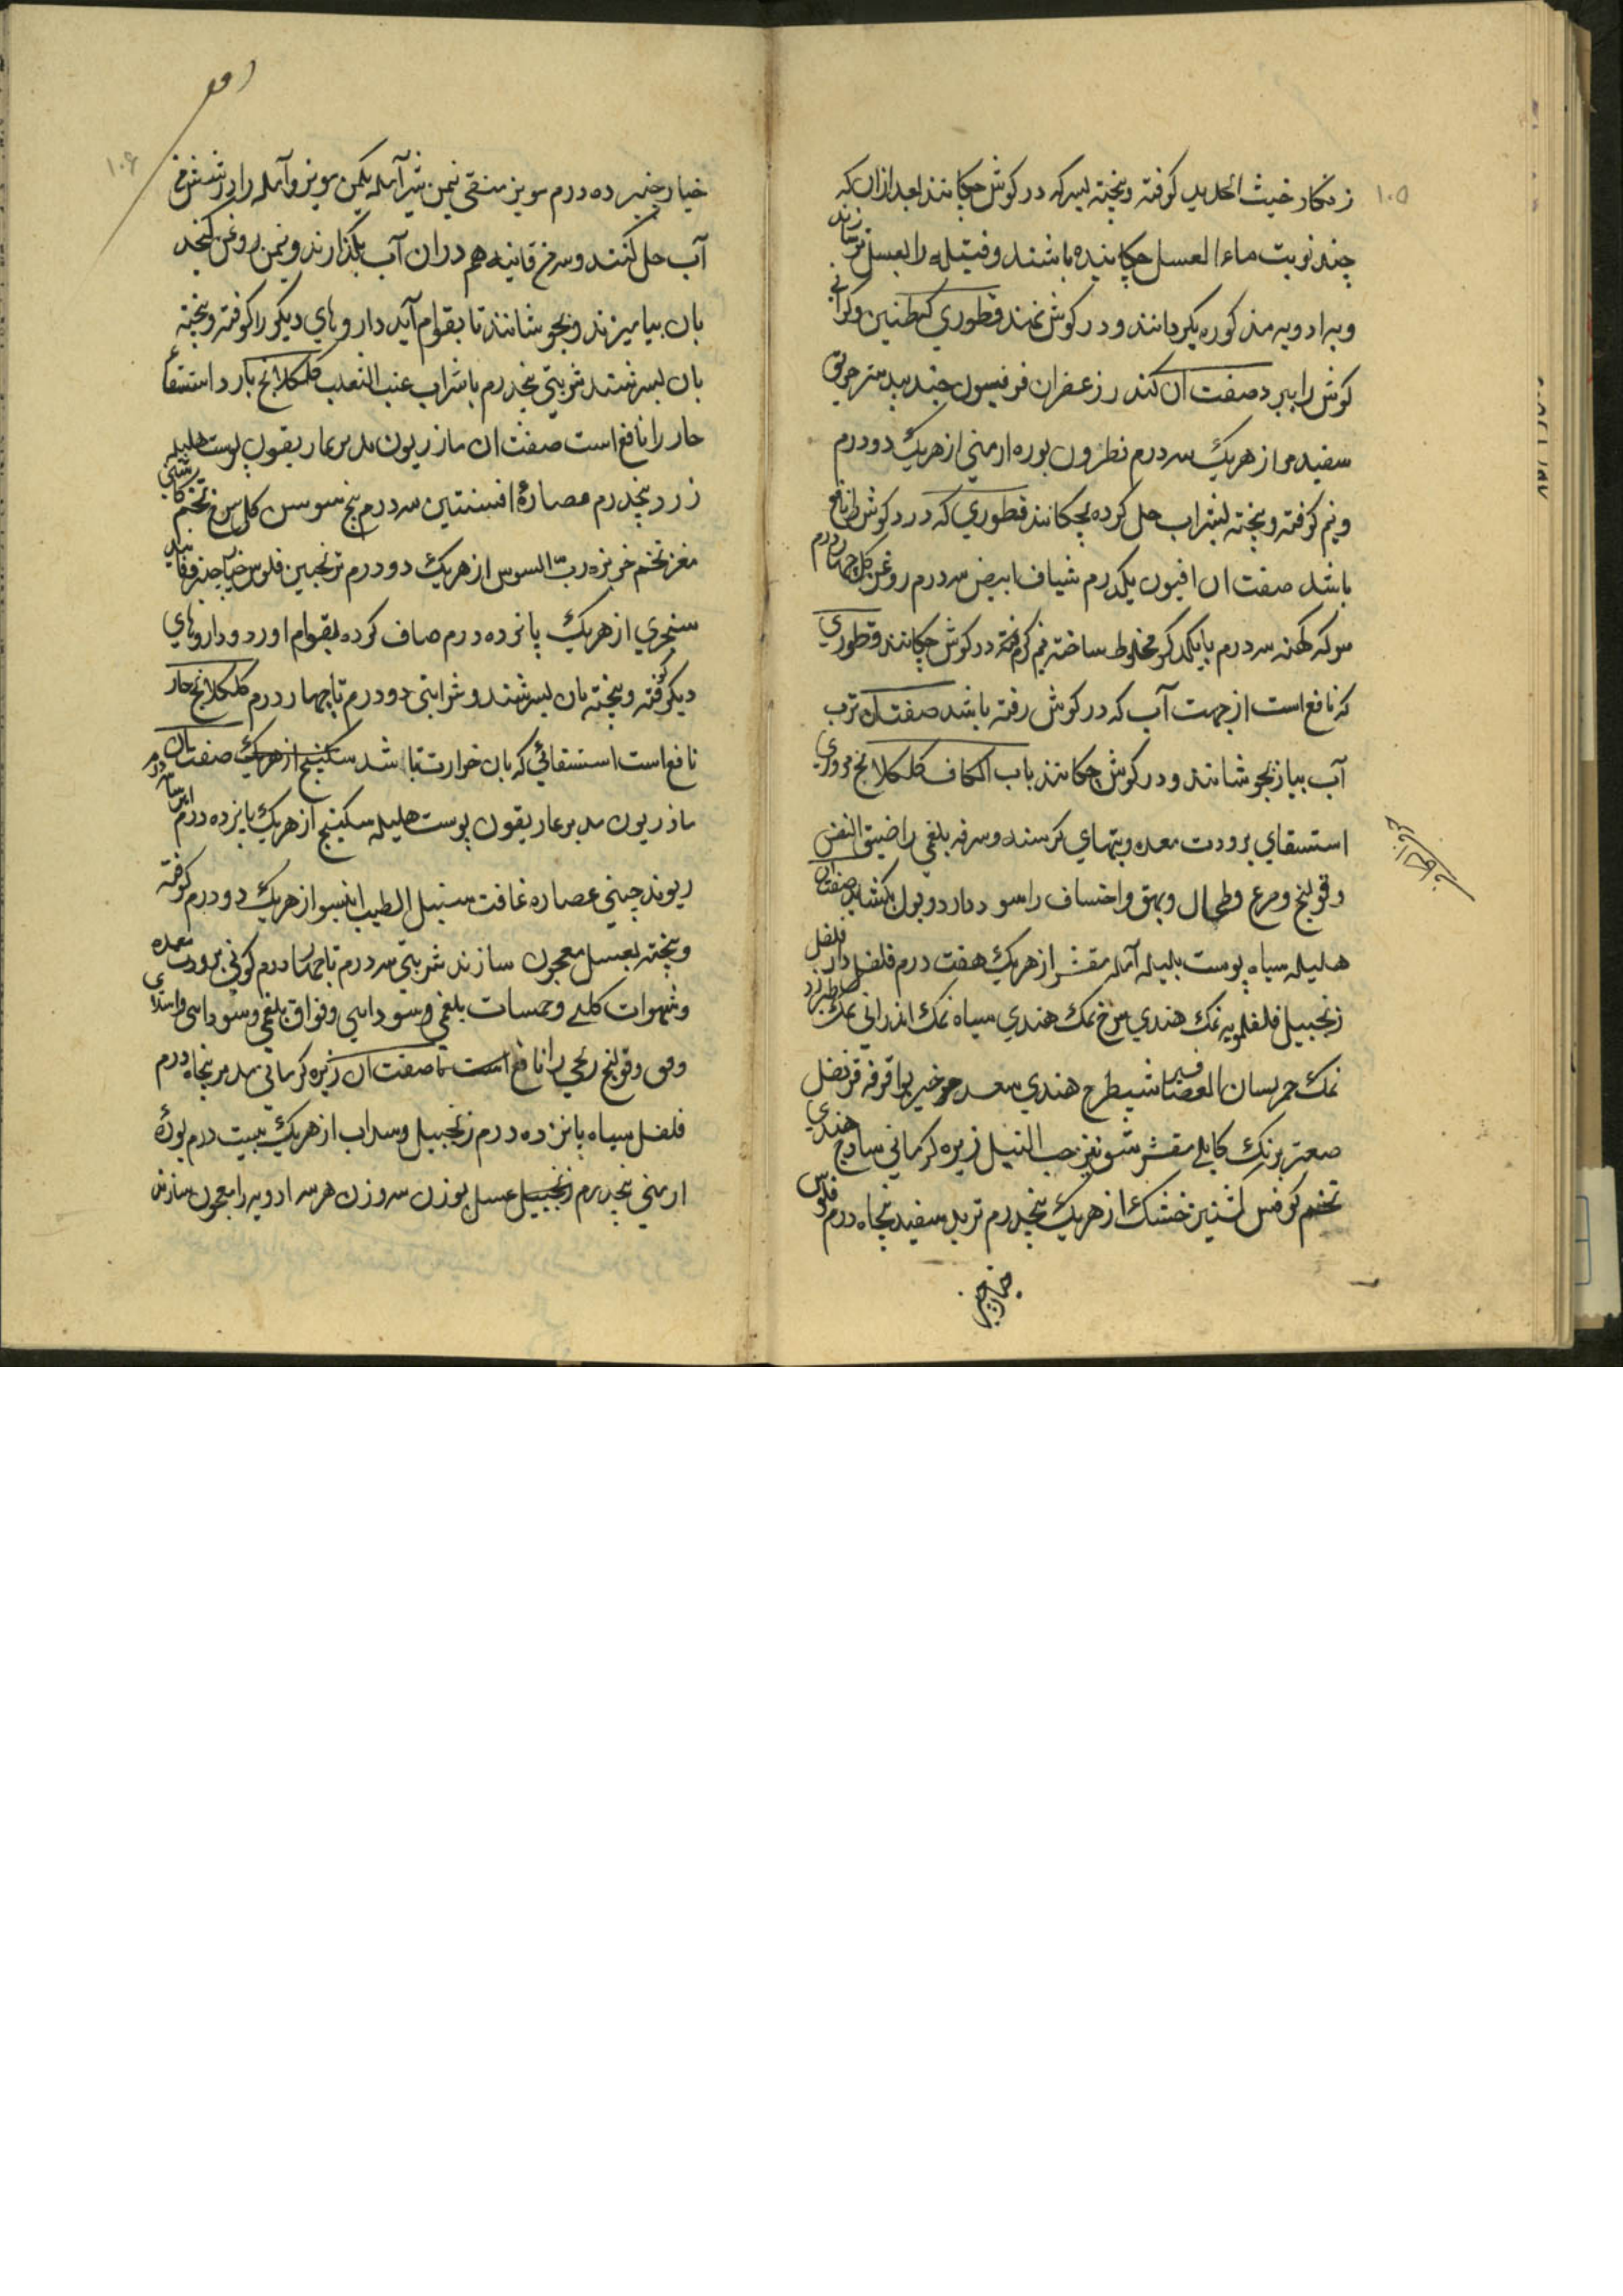 ۱۰۵
زنکار خبث الحدید کوفته و بیخته بسرکه در کوش چکانند بعد ازان که
چند نوبت ماء العسل چکانیده باشند و فتیله را بعسل تر سازند
و به ادویه مذکوره بکردانند و در کوش نهند قطوری که طنین و کرانی
کوش را ببرد صفت آن کندر زعفران فرفیون جندبیدستر خربق
سفید مر از هریک سه درم نطرون بوره ارمنی از هریک دو درم
و نیم کوفته و بیخته بشراب حل کرده بچکانند قطوری که درد کوش را نافع
باشد صفت ان افیون یکدرم شیاف ابیض سه درم روغن کل چهار درم
سرکه کهنه سه درم با یکدکر مخلوط ساخته نیم کرم در کوش چکانند قطوری
که نافع است از جهت آب که در کوش رفته باشد صفت آن ترب
آب پیاز بجوشانند و در کوش چکانند باب الکاف کلکلانج
استسقای برودت معده و تبهای کهنه و سرفه بلغمی را ضیق النفس
و قولنج و صرع و طحال و بهق و را سود دارد و بول بکشاید صفت آن
هلیله سیاه پوست بلیله آمله مقشر از هریک هفت درم فلفل دار فلفل
زنجبیل فلفلمویه نمک هندی سرخ نمک هندی سیاه نمک اندرانی نمک طبرزد
نمک لسان العصافیر شیطرج هندی سعد قرفه قرنفل
صعتر برنک کابلی مقشر شونیز حب النیل زیره کرمانی سادج هندی
تخم کرفس کشنیز خشک از هریک پنجدرم تربد سفید پنجاه درم فلوس
خیارچنبر
۱۰۶
خیارچنبر ده درم مویز منقی نیمن شیر آمله یکمن مویز و آمله را در شش من
آب حل کنند و سه من فانید هم دران آب بکذارند و نیمن روغن کنجد
بان بیامیزند و بجوشانند تا بقوام آید داروهای دیکر را کوفته و بیخته
بان بسرشند شربتی پنجدرم با شراب عنب الثعلب کلکلانج بارد استسقاء
حار را نافع است صفت ان مازریون مدبر غاریقون پوست هلیله
زرد پنجدرم عصارۀ افسنتین سه درم بیخ سوسن کل سرخ تخم کاسنی
مغز تخم خربزه رب السوس از هریک دو درم ترنجبین فلوس خیارچنبر فانید
سنجری از هریک پانزده درم صاف کرده بقوام اورد و داروهای
دیکر کوفته و بیخته بان بسرشند و شرابتی دو درم تا چهار درم کلکلانج حار
نافع است استسقائی که بان حرارت نباشد سکبینج از هریک صفت آن
مازریون مدبر غاریقون پوست هلیله سکبینج از هریک پانزده درم
ریوند چینی عصاره غافت سنبل الطیب انیسون از هریک دو درم کوفته
و بیخته بعسل معجون سازند شربتی سه درم تا چهار درم کمونی برودت معده
و شهوات کلبی و بلغمی و سوداسی و فواق بلغمی و سوداسی
و قولنج ریحی را نافع است صفت ان زیره کرمانی مدبر پنجاه درم
فلفل سیاه پانزده درم زنجبیل و سداب از هریک بیست درم بورۀ
ارمنی پنجدرم زنجبیل عسل بوزن سه وزن هرسه ادویه را معجون سازند